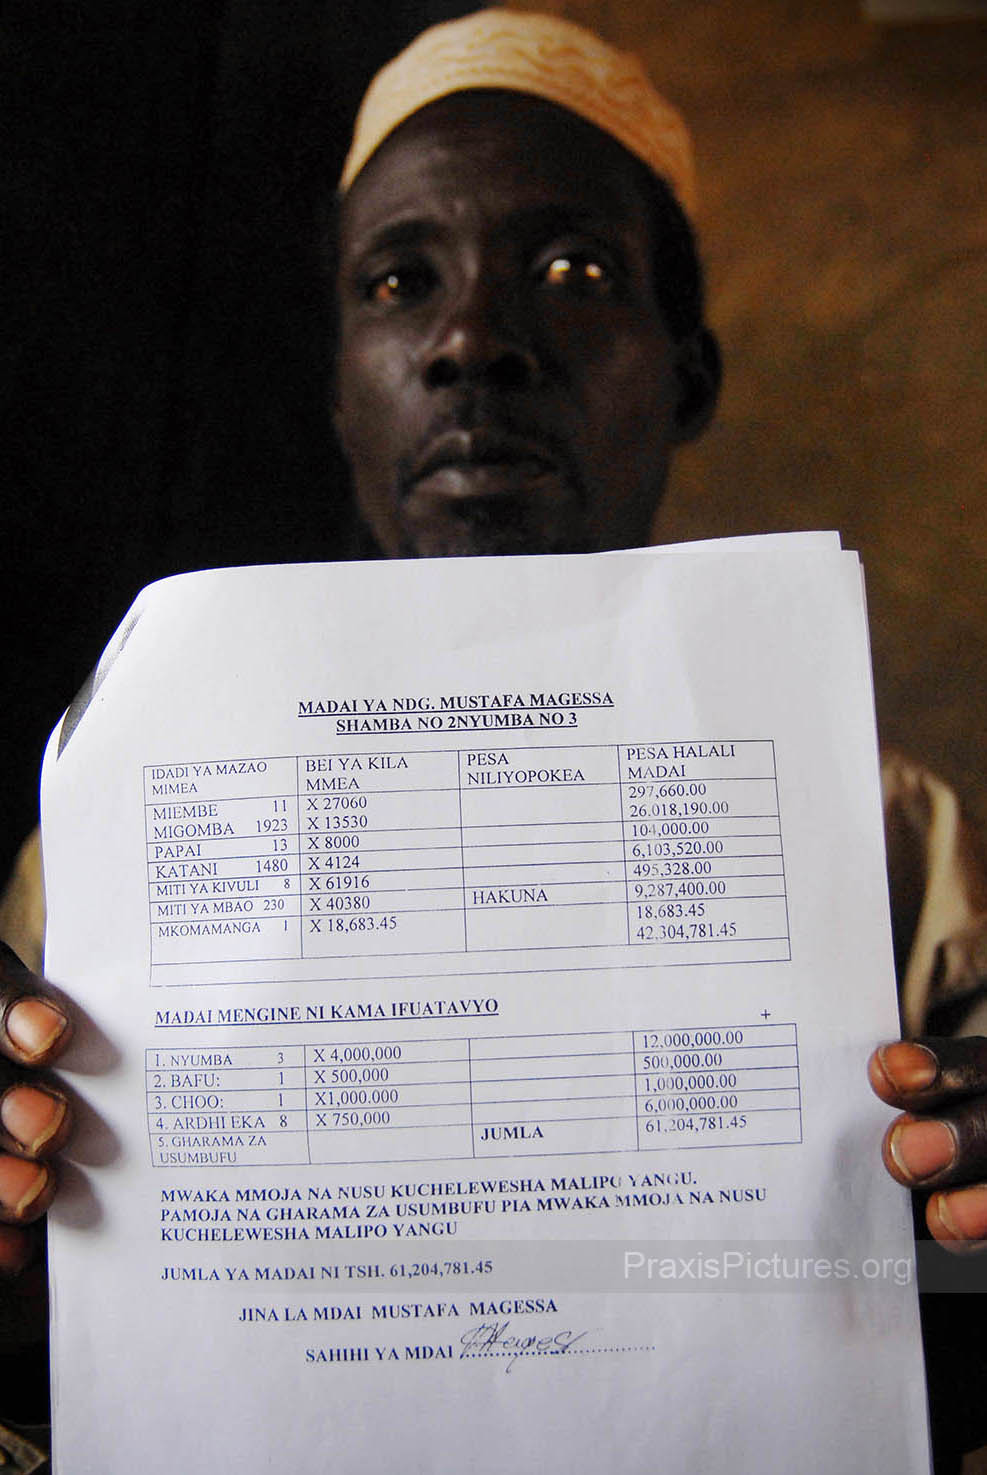 MADAI YA NDG. MUSTAFA MAGESSA
SHAMBA NO 2NYUMBA NO 3
IDADI YA MAZAO MIMEA BEI YA KILA MMEA PESA NILIYOPOKEA PESA HALALI MADAI
MIEMBE 11 X 27060 297,660.00
MIGOMBA 1923 X 13530 26.018,190.00
PAPAI 13 X 8000 104,000.00
KATANI 1480 X 4124 6,103,520.00
MITI YA KIVULI 8 X 61916 495,328.00
MITI YA MBAO 230 X 40380 HAKUNA 9,287,400.00
MKOMAMANGA 1 X 18,683.45 18,683.45
42,304,781.45
MADAI MENGINE NI KAMA IFUATAVYO
+
1. NYUMBA 3 X 4,000,000 12,000,000.00
2. BAFU: 1 X 500,000 500,000.00
3. CHOO: 1 X1,000.000 1,000,000.00
4. ARDHI EKA 8 X 750,000 6,000,000.00
5. GHARAMA ZA USUMBUFU JUMLA 61,204,781.45
MWAKA MMOJA NA NUSU KUCHELEWESHA MALIPO YANGU.
PAMOJA NA GHARAMA ZA USUMBUFU PIA MWAKA MMOJA NA NUSU
KUCHELEWESHA MALIPO YANGU
JUMLA YA MADAI NI TSH. 61,204,781.45
JINA LA MDAI MUSTAFA MAGESSA
SAHIHI YA MDAI
PraxisPictures.org